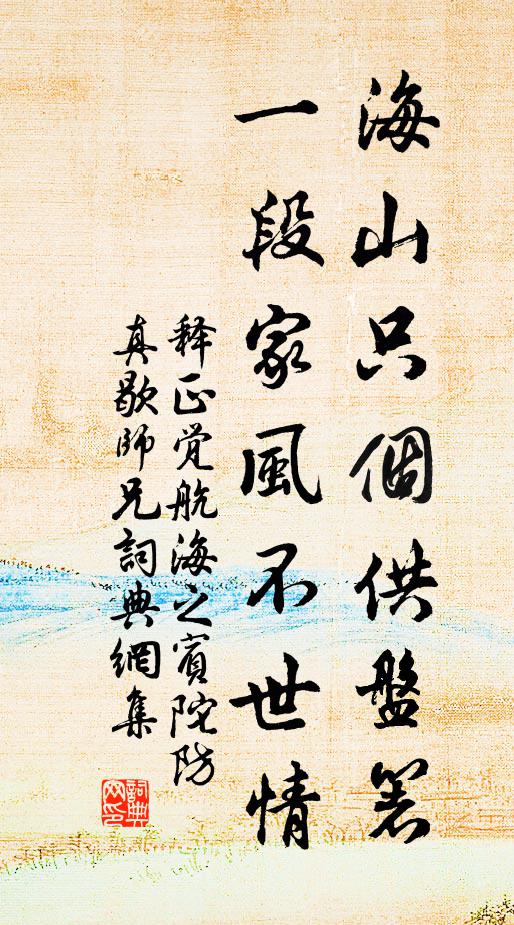 海山只個供盤箸
一段家風不世情
释正觉航海之賓陀防
真歇師兄詞典網集
詞典网印